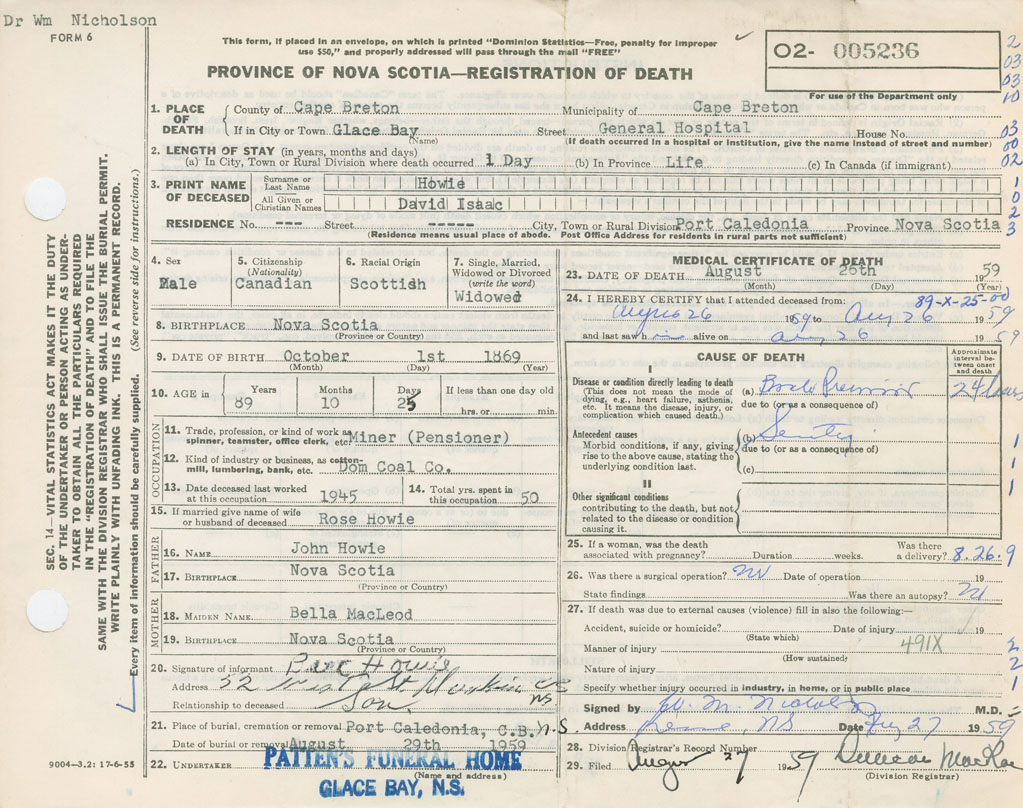 Dr Wm Nicholson
FORM 6
This form, if placed in an envelope, on which is printed "Dominion Statistics—Free, penalty for improper
use $50," and properly addressed will pass through the mail "FREE"
PROVINCE OF NOVA SCOTIA—REGISTRATION OF DEATH
02- 005236
For use of the Department only
2
03
03
10
03
00
02
1
0
2
3
SEC. 14—VITAL STATISTICS ACT MAKES IT THE DUTY
OF THE UNDERTAKER OR PERSON ACTING AS UNDER-
TAKER TO OBTAIN ALL THE PARTICULARS REQUIRED
IN THE "REGISTRATION OF DEATH" AND TO FILE THE
SAME WITH THE DIVISION REGISTRAR WHO SHALL ISSUE THE BURIAL PERMIT.
WRITE PLAINLY WITH UNFADING INK. THIS IS A PERMANENT RECORD.
Every item of information should be carefully supplied. (See reverse side for instructions.)
1. PLACE OF DEATH
County of Cape Breton Municipality of Cape Breton
If in City or Town Glace Bay Street General Hospital House No.
(Name) (If death occurred in a hospital or institution, give the name instead of street and number)
2. LENGTH OF STAY (in years, months and days)
(a) In City, Town or Rural Division where death occurred 1 Day (b) In Province Life (c) In Canada (if immigrant)
3. PRINT NAME OF DECEASED
Surname or Last Name Howie
All Given or Christian Names David Isaac
RESIDENCE No. ---- Street ---- City, Town or Rural Division Port Caledonia Province Nova Scotia
(Residence means usual place of abode. Post Office Address for residents in rural parts not sufficient)
4. Sex
Male
5. Citizenship
(Nationality)
Canadian
6. Racial Origin
Scottish
7. Single, Married,
Widowed or Divorced
(write the word)
Widowed
8. BIRTHPLACE Nova Scotia
(Province or Country)
9. DATE OF BIRTH October 1st 1869
(Month) (Day) (Year)
10. AGE in
Years Months Days If less than one day old
89 10 25 hrs. or min.
OCCUPATION
11. Trade, profession, or kind of work as
spinner, teamster, office clerk, etc. Miner (Pensioner)
12. Kind of industry or business, as cotton-
mill, lumbering, bank, etc. Dom Coal Co.
13. Date deceased last worked
at this occupation 1945
14. Total yrs. spent in
this occupation 50
15. If married give name of wife
or husband of deceased Rose Howie
FATHER
16. NAME John Howie
17. BIRTHPLACE Nova Scotia
(Province or Country)
MOTHER
18. MAIDEN NAME Bella MacLeod
19. BIRTHPLACE Nova Scotia
(Province or Country)
20. Signature of informant Howie
Address 32 West St
NS
Relationship to deceased Son
21. Place of burial, cremation or removal Port Caledonia, C.B, N.S.
Date of burial or removal August 29th 1959
22. UNDERTAKER PATTEN'S FUNERAL HOME
(Name and address)
GLACE BAY, N.S.
9004—3.2: 17-6-55
MEDICAL CERTIFICATE OF DEATH
23. DATE OF DEATH August 26th 1959
(Month) (Day) (Year)
24. I HEREBY CERTIFY that I attended deceased from: 89-X-25-00
26 1959 to Aug 26 1959
and last saw h alive on Aug 26 1959
CAUSE OF DEATH
Approximate
interval be-
tween onset
and death
I
Disease or condition directly leading to death
(This does not mean the mode of
dying, e.g., heart failure, asthenia,
etc. It means the disease, injury, or
complication which caused death.)
(a)
due to (or as a consequence of)
24 hours
Antecedent causes
Morbid conditions, if any, giving
rise to the above cause, stating the
underlying condition last.
(b)
due to (or as a consequence of)
(c)
1
1
1
II
Other significant conditions
contributing to the death, but not
related to the disease or condition
causing it.
25. If a woman, was the death
associated with pregnancy? Duration weeks. Was there
a delivery? 8.26.9
26. Was there a surgical operation? No Date of operation 19
State findings Was there an autopsy? No
27. If death was due to external causes (violence) fill in also the following:—
Accident, suicide or homicide? Date of injury 19
(State which)
Manner of injury 491X
(How sustained)
Nature of injury
Specify whether injury occurred in industry, in home, or in public place
2
2
1
Signed by W. M. Nicholson M.D.
Address NS Date 27 1959
28. Division Registrar's Record Number
29. Filed August 27 1959 MacRae
(Division Registrar)